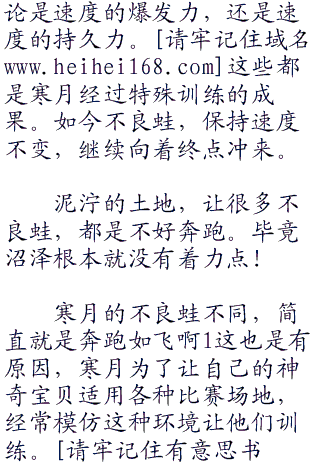 论是速度的爆发力，还是速
度的持久力。[请牢记住域名
www.heihei168.com]这些都
是寒月经过特殊训练的成
果。如今不良蛙，保持速度
不变，继续向着终点冲来。
泥泞的土地，让很多不
良蛙，都是不好奔跑。毕竟
沼泽根本就没有着力点!
寒月的不良蛙不同，简
直就是奔跑如飞啊1这也是有
原因，寒月为了让自己的神
奇宝贝适用各种比赛场地，
经常模仿这种环境让他们训
练。[请牢记住有意思书